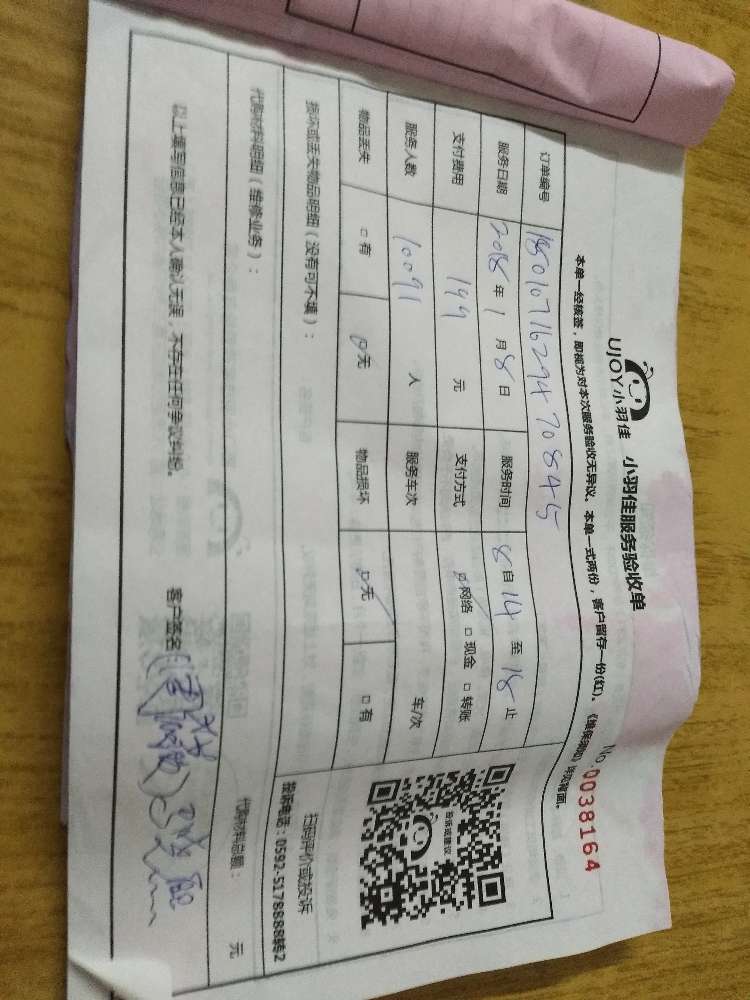 UJOY小羽佳 小羽佳服务验收单
No:0038164
本单一经核签，即视为对本次服务验收无异议。本单一式两份，客户留存一份(红)。《维保须知》详见背面。
订单编号 1801071629470845
服务日期 2018年1月8日 服务时间 8自14至18止
支付费用 199元 支付方式 □网络 □现金 □转账
服务人数 10091人 服务车次 车/次
物品丢失 □有 □无 物品损坏 □无 □有
损坏或丢失物品明细（没有可不填）：
代购材料明细（维修业务）：
代购材料总额： 元
以上填写信息已经本人确认无误，不存在任何争议纠纷。 客户签名
告诉或建议
扫码评价或投诉
投诉电话：0592-5178888转2